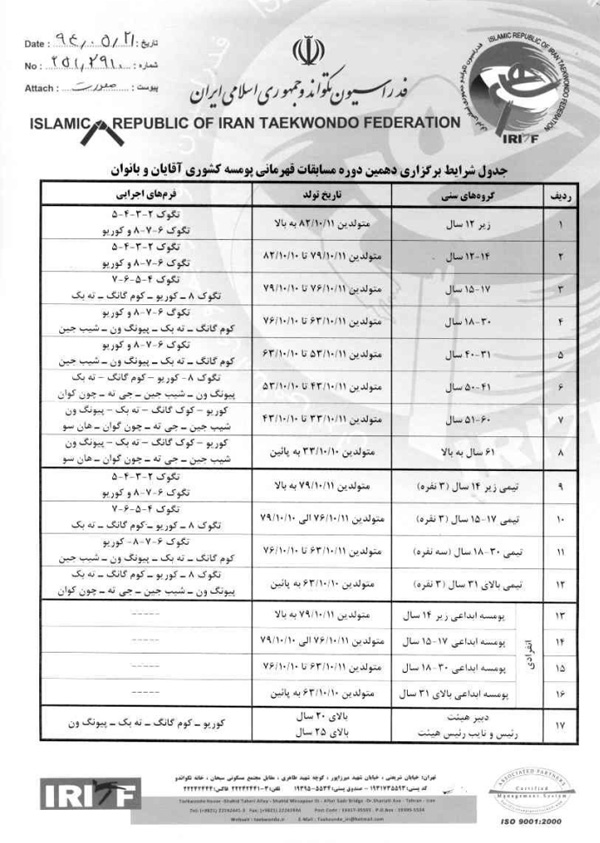 Date : ۹۴/۰۵/۲۱ تاریخ:
No : ۲۵۱/۲۹۱۰ شماره:
Attach : پیوست:
فدراسیون تکواندو جمهوری اسلامی ایران
ISLAMIC REPUBLIC OF IRAN TAEKWONDO FEDERATION
ISLAMIC REPUBLIC OF IRAN TAEKWONDO FEDERATION
IRITF
جدول شرایط برگزاری دهمین دوره مسابقات قهرمانی پومسه کشوری آقایان و بانوان
ردیف گروه‌های سنی تاریخ تولد فرم‌های اجرایی
۱ زیر ۱۲ سال متولدین ۸۲/۱۰/۱۱ به بالا تگوک ۲-۳-۴-۵
تگوک ۶-۷-۸ و کوریو
۲ ۱۲-۱۴ سال متولدین ۷۹/۱۰/۱۱ تا ۸۲/۱۰/۱۰ تگوک ۲-۳-۴-۵
تگوک ۶-۷-۸ و کوریو
۳ ۱۵-۱۷ سال متولدین ۷۶/۱۰/۱۱ تا ۷۹/۱۰/۱۰ تگوک ۴-۵-۶-۷
تگوک ۸ ـ کوریو ـ کوم گانگ ـ ته بک
۴ ۱۸-۳۰ سال متولدین ۶۳/۱۰/۱۱ تا ۷۶/۱۰/۱۰ تگوک ۶-۷-۸ و کوریو
کوم گانگ ـ ته بک ـ پیونگ ون ـ شیب جین
۵ ۳۱-۴۰ سال متولدین ۵۳/۱۰/۱۱ تا ۶۳/۱۰/۱۰ تگوک ۶-۷-۸ و کوریو
کوم گانگ ـ ته بک ـ پیونگ ون ـ شیب جین
۶ ۴۱-۵۰ سال متولدین ۴۳/۱۰/۱۱ تا ۵۳/۱۰/۱۰ تگوک ۸- کوریو – کوم گانگ – ته بک
پیونگ ون ـ شیب جین ـ جی ته ـ چون کوان
۷ ۵۱-۶۰ سال متولدین ۳۳/۱۰/۱۱ تا ۴۳/۱۰/۱۰ کوریو – کوک گانگ – ته بک – پیونگ ون
شیب جین ـ جی ته ـ چون گوان ـ هان سو
۸ ۶۱ سال به بالا متولدین ۳۳/۱۰/۱۰ به پائین کوریو – کوم گانگ – ته بک – پیونگ ون
شیب جین ـ جی ته ـ چون گوان ـ هان سو
۹ تیمی زیر ۱۴ سال (۳ نفره) متولدین ۷۹/۱۰/۱۱ به بالا تگوک ۲-۳-۴-۵
تگوک ۶-۷-۸ و کوریو
۱۰ تیمی ۱۵-۱۷ سال (۳ نفره) متولدین ۷۶/۱۰/۱۱ الی ۷۹/۱۰/۱۰ تگوک ۴-۵-۶-۷
تگوک ۸ ـ کوریو ـ کوم گانگ ـ ته بک
۱۱ تیمی ۱۸-۳۰ سال (سه نفره) متولدین ۶۳/۱۰/۱۱ تا ۷۶/۱۰/۱۰ تگوک ۶-۷-۸- کوریو
کوم گانگ ـ ته بک ـ پیونگ ون ـ شیب جین
۱۲ تیمی بالای ۳۱ سال (۳ نفره) متولدین ۶۳/۱۰/۱۰ به پائین تگوک ۸ ـ کوریو ـ کوم گانگ ـ ته بک
پیونگ ون ـ شیب جین ـ جی ته ـ چون کوان
انفرادی
۱۳ پومسه ابداعی زیر ۱۴ سال متولدین ۷۹/۱۰/۱۱ به بالا -----
۱۴ پومسه ابداعی ۱۵-۱۷ سال متولدین ۷۶/۱۰/۱۱ الی ۷۹/۱۰/۱۰ -----
۱۵ پومسه ابداعی ۱۸-۳۰ سال متولدین ۶۳/۱۰/۱۱ تا ۷۶/۱۰/۱۰ -----
۱۶ پومسه ابداعی بالای ۳۱ سال متولدین ۶۳/۱۰/۱۰ به پائین -----
۱۷ دبیر هیئت بالای ۲۰ سال کوریو ـ کوم گانگ ـ ته بک ـ پیونگ ون
رئیس و نایب رئیس هیئت بالای ۲۵ سال
IRITF
تهران: خیابان شریعتی ، خیابان شهید میرزاپور ، کوچه شهید طاهری ، مقابل مجتمع مسکونی سبحان ، خانه تکواندو
ASSOCIATED PARTNERS
Certified
Management System
ISO 9001:2000